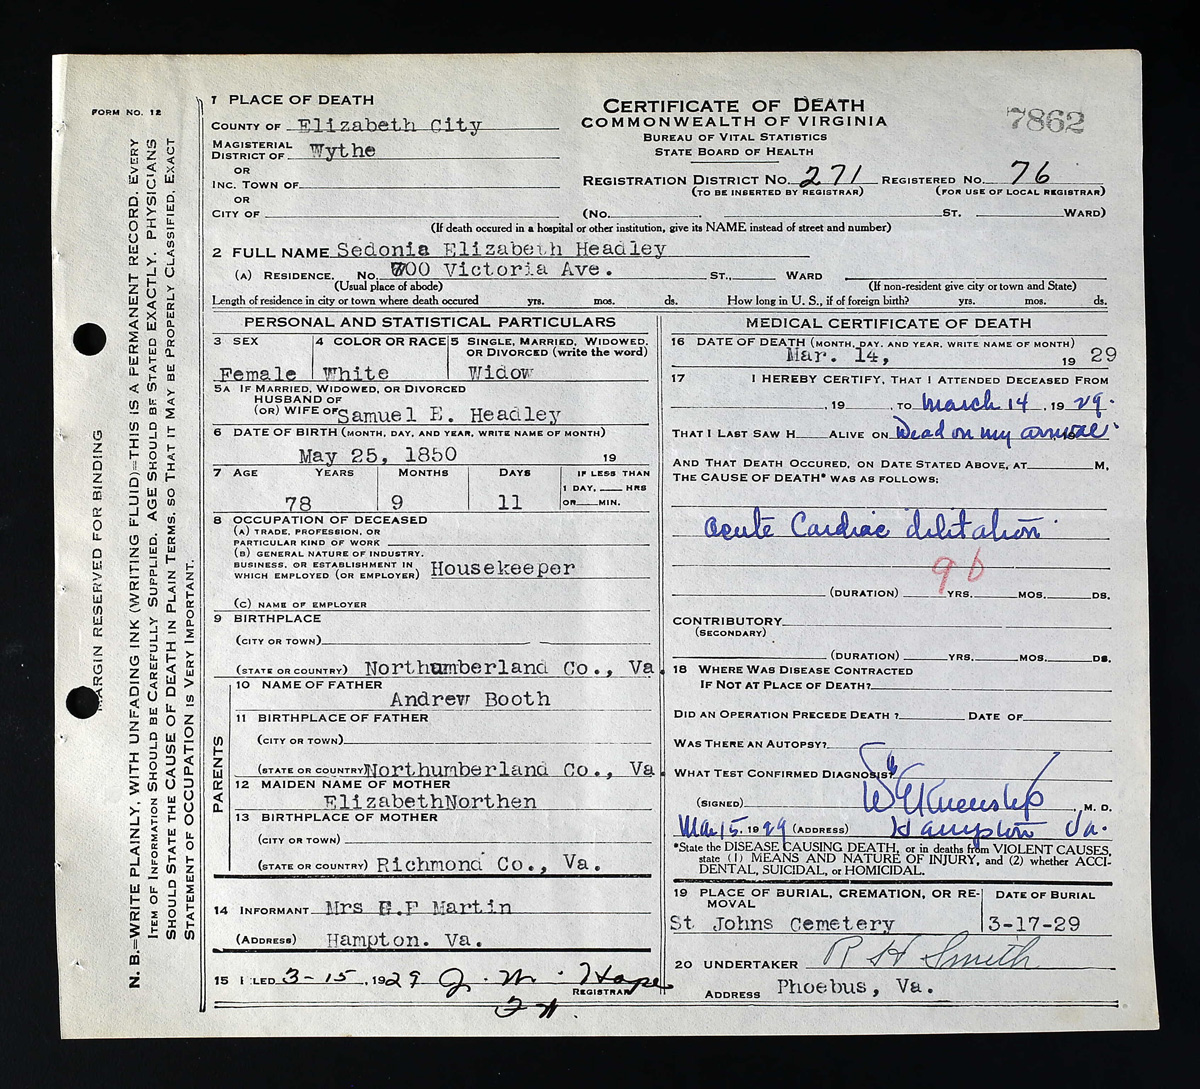 FORM NO. 12
MARGIN RESERVED FOR BINDING
N. B.=WRITE PLAINLY, WITH UNFADING INK (WRITING FLUID)=THIS IS A PERMANENT RECORD. EVERY
ITEM OF INFORMATION SHOULD BE CAREFULLY SUPPLIED. AGE SHOULD BE STATED EXACTLY. PHYSICIANS
SHOULD STATE THE CAUSE OF DEATH IN PLAIN TERMS, SO THAT IT MAY BE PROPERLY CLASSIFIED. EXACT
STATEMENT OF OCCUPATION IS VERY IMPORTANT.
CERTIFICATE OF DEATH
COMMONWEALTH OF VIRGINIA
BUREAU OF VITAL STATISTICS
STATE BOARD OF HEALTH
7862
1 PLACE OF DEATH
COUNTY OF Elizabeth City
MAGISTERIAL
DISTRICT OF Wythe
OR
INC. TOWN OF
OR
CITY OF
REGISTRATION DISTRICT NO. 271 REGISTERED NO. 76
(TO BE INSERTED BY REGISTRAR) (FOR USE OF LOCAL REGISTRAR)
(NO. ST. WARD)
(If death occured in a hospital or other institution, give its NAME instead of street and number)
2 FULL NAME Sedonia Elizabeth Headley
(A) RESIDENCE. NO. 700 Victoria Ave. ST., WARD
(Usual place of abode) (If non-resident give city or town and State)
Length of residence in city or town where death occured yrs. mos. ds. How long in U. S., if of foreign birth? yrs. mos. ds.
PERSONAL AND STATISTICAL PARTICULARS
3 SEX 4 COLOR OR RACE 5 SINGLE, MARRIED, WIDOWED,
OR DIVORCED (write the word)
Female White Widow
5A IF MARRIED, WIDOWED, OR DIVORCED
HUSBAND OF
(OR) WIFE OF Samuel E. Headley
6 DATE OF BIRTH (MONTH, DAY, AND YEAR, WRITE NAME OF MONTH)
May 25, 1850 19
7 AGE YEARS MONTHS DAYS IF LESS THAN
1 DAY, HRS
78 9 11 OR MIN.
8 OCCUPATION OF DECEASED
(A) TRADE, PROFESSION, OR
PARTICULAR KIND OF WORK
(B) GENERAL NATURE OF INDUSTRY,
BUSINESS, OR ESTABLISHMENT IN
WHICH EMPLOYED (OR EMPLOYER) Housekeeper
(C) NAME OF EMPLOYER
9 BIRTHPLACE
(CITY OR TOWN)
(STATE OR COUNTRY) Northumberland Co., Va.
PARENTS
10 NAME OF FATHER
Andrew Booth
11 BIRTHPLACE OF FATHER
(CITY OR TOWN)
(STATE OR COUNTRY Northumberland Co., Va.
12 MAIDEN NAME OF MOTHER
ElizabethNorthen
13 BIRTHPLACE OF MOTHER
(CITY OR TOWN)
(STATE OR COUNTRY) Richmond Co., Va.
14 INFORMANT Mrs E.F Martin
(ADDRESS) Hampton. Va.
15 FILED 3-15, 1929 J. M. Hope
REGISTRAR
MEDICAL CERTIFICATE OF DEATH
16 DATE OF DEATH (MONTH, DAY, AND YEAR, WRITE NAME OF MONTH)
Mar. 14, 19 29
17 I HEREBY CERTIFY, THAT I ATTENDED DECEASED FROM
, 19 , TO March 14, 1929.
THAT I LAST SAW H ALIVE ON Dead on my arrival
AND THAT DEATH OCCURED, ON DATE STATED ABOVE, AT M,
THE CAUSE OF DEATH* WAS AS FOLLOWS;
Acute Cardiac dilitation
(DURATION) YRS. MOS. DS.
CONTRIBUTORY
(SECONDARY)
(DURATION) YRS. MOS. DS.
18 WHERE WAS DISEASE CONTRACTED
IF NOT AT PLACE OF DEATH?
DID AN OPERATION PRECEDE DEATH ? DATE OF
WAS THERE AN AUTOPSY?
WHAT TEST CONFIRMED DIAGNOSIS?
(SIGNED) , M. D.
Mar 15. 1929 (ADDRESS) Hampton Va.
*State the DISEASE CAUSING DEATH, or in deaths from VIOLENT CAUSES,
state (1) MEANS AND NATURE OF INJURY, and (2) whether ACCI-
DENTAL, SUICIDAL, or HOMICIDAL.
19 PLACE OF BURIAL, CREMATION, OR RE- DATE OF BURIAL
MOVAL
St Johns Cemetery 3-17-29
20 UNDERTAKER R H Smith
ADDRESS Phoebus, Va.